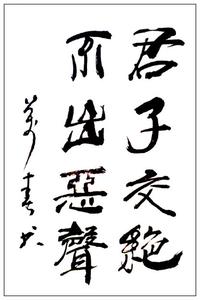 君子交絶
不出惡聲